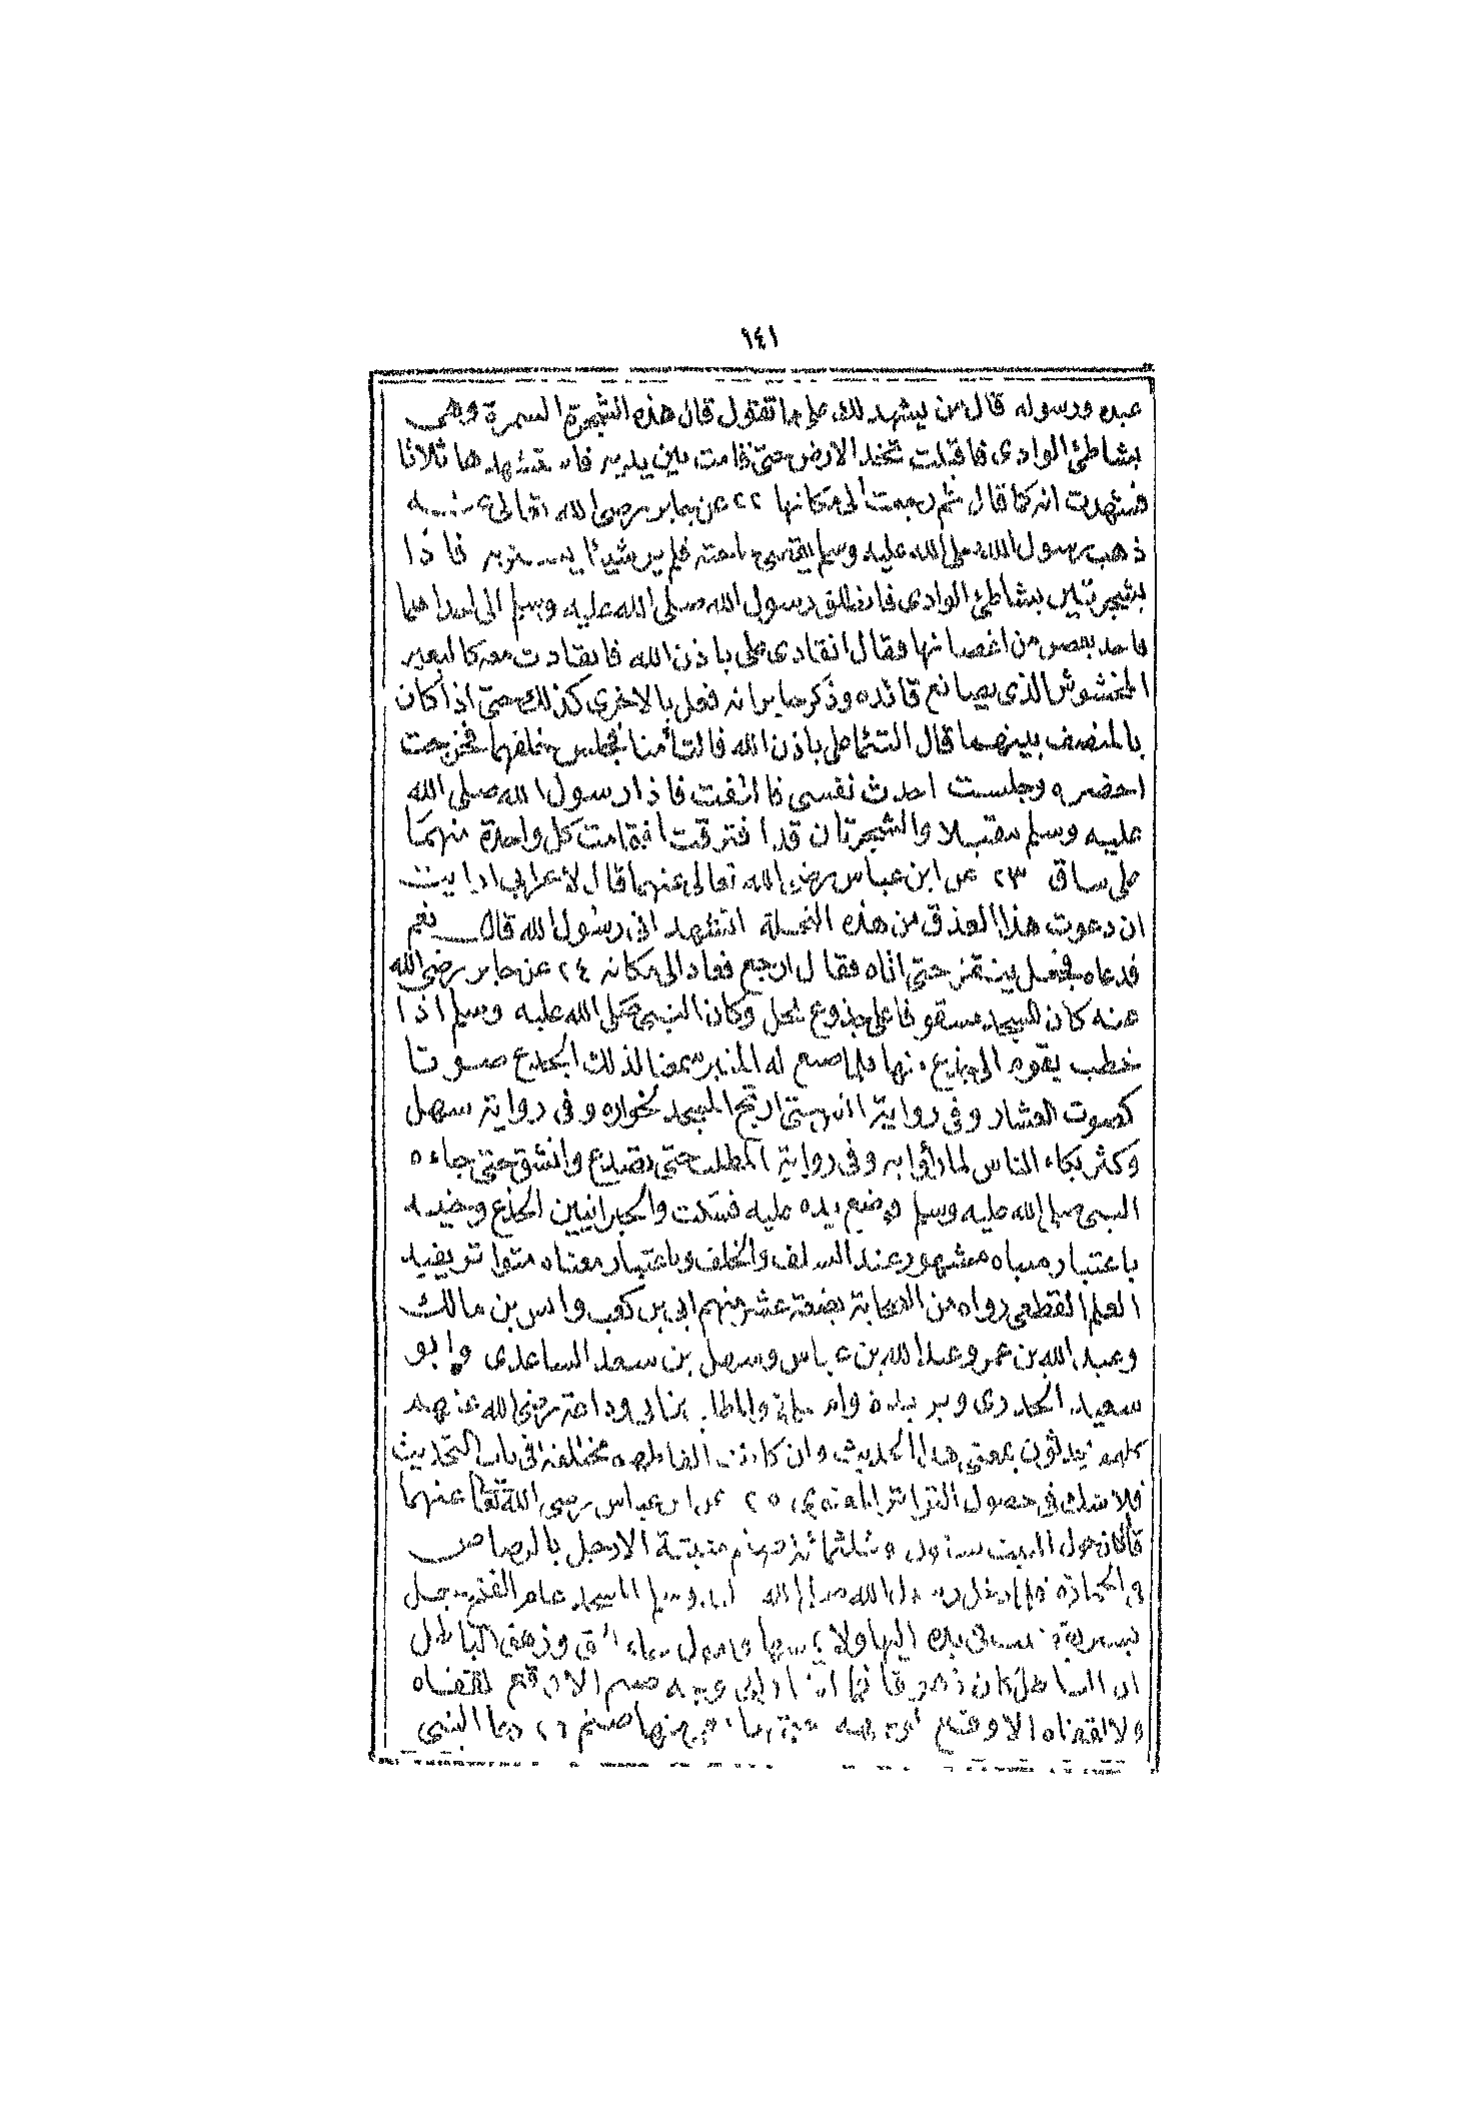 ١٤١
عبده ورسوله قال من يشهد لك على ما تقول قال هذه الشجرة السمرة وهى
بشاطئ الوادى فاقبلت تخد الارض حتى قامت بين يديه فاستشهدها ثلاثا
فشهدت انه كما قال ثم رجعت الى مكانها ٢٢ عن جابر رضى الله تعالى عنه
ذهب رسول الله صلى الله عليه وسلم يقضى حاجته فلم ير شيئا يستتر به فاذا
بشجرتين بشاطئ الوادى فانطلق رسول الله صلى الله عليه وسلم الى احداهما
فاخذ بغصن من اغصانها فقال انقادى على باذن الله فانقادت معه كالبعير
المخشوش الذى يصانع قائده وذكر جابر انه فعل بالاخرى كذلك حتى اذا كان
بالمنصف بينهما قال التئما على باذن الله فالتأمتا فجلس خلفهما فخرجت
احضر وجلست احدث نفسى فالتفت فاذا رسول الله صلى الله
عليه وسلم مقبلا والشجرتان قد افترقتا فقامت كل واحدة منهما
على ساق ٢٣ عن ابن عباس رضى الله تعالى عنهما قال لاعرابى ارايت
ان دعوت هذا العذق من هذه النخلة اتشهد انى رسول الله قال نعم
فدعاه فجعل ينقز حتى اتاه فقال ارجع فعاد الى مكانه ٢٤ عن جابر رضى الله
عنه كان المسجد مسقوفا على جذوع نخل وكان النبى صلى الله عليه وسلم اذا
خطب يقوم الى جذع منها فلما صنع له المنبر سمعنا لذلك الجذع صوتا
كصوت العشار وفى رواية انس حتى ارتج المسجد لخواره وفى رواية سهل
وكثر بكاء الناس لما رأوا به وفى رواية المطلب حتى تصدع وانشق حتى جاءه
النبى صلى الله عليه وسلم فوضع يده عليه فسكت والخبر انين الجذع وحنينه
باعتبار مبناه مشهور عند السلف والخلف وباعتبار معناه متواتر يفيد
العلم القطعى رواه من الصحابة بضعة عشر منهم ابى بن كعب وانس بن مالك
وعبد الله بن عمر وعبد الله بن عباس وسهل بن سعد الساعدى وابو
سعيد الخدرى وبريدة وام سلمة والمطلب بن ابى وداعة رضى الله عنهم
كلهم يحدثون بمعنى هذا الحديث وان كانت الفاظهم مختلفة فى باب التحديث
فلا شك فى حصول التواتر المعنوى ٢٥ عن ابن عباس رضى الله تعالى عنهما
قال كان حول البيت ستون وثلثمائة صنم مثبتة الارجل بالرصاص
فى الحجارة فلما دخل رسول الله صلى الله عليه وسلم المسجد عام الفتح جعل
يشير بقضيب فى يده اليها ولا يمسها ويقول جاء الحق وزهق الباطل
ان الباطل كان زهوقا فما اشار الى وجه صنم الا وقع لقفاه
ولا لقفاه الا وقع لوجهه حتى ما بقى منها صنم ٢٦ دعا النبى